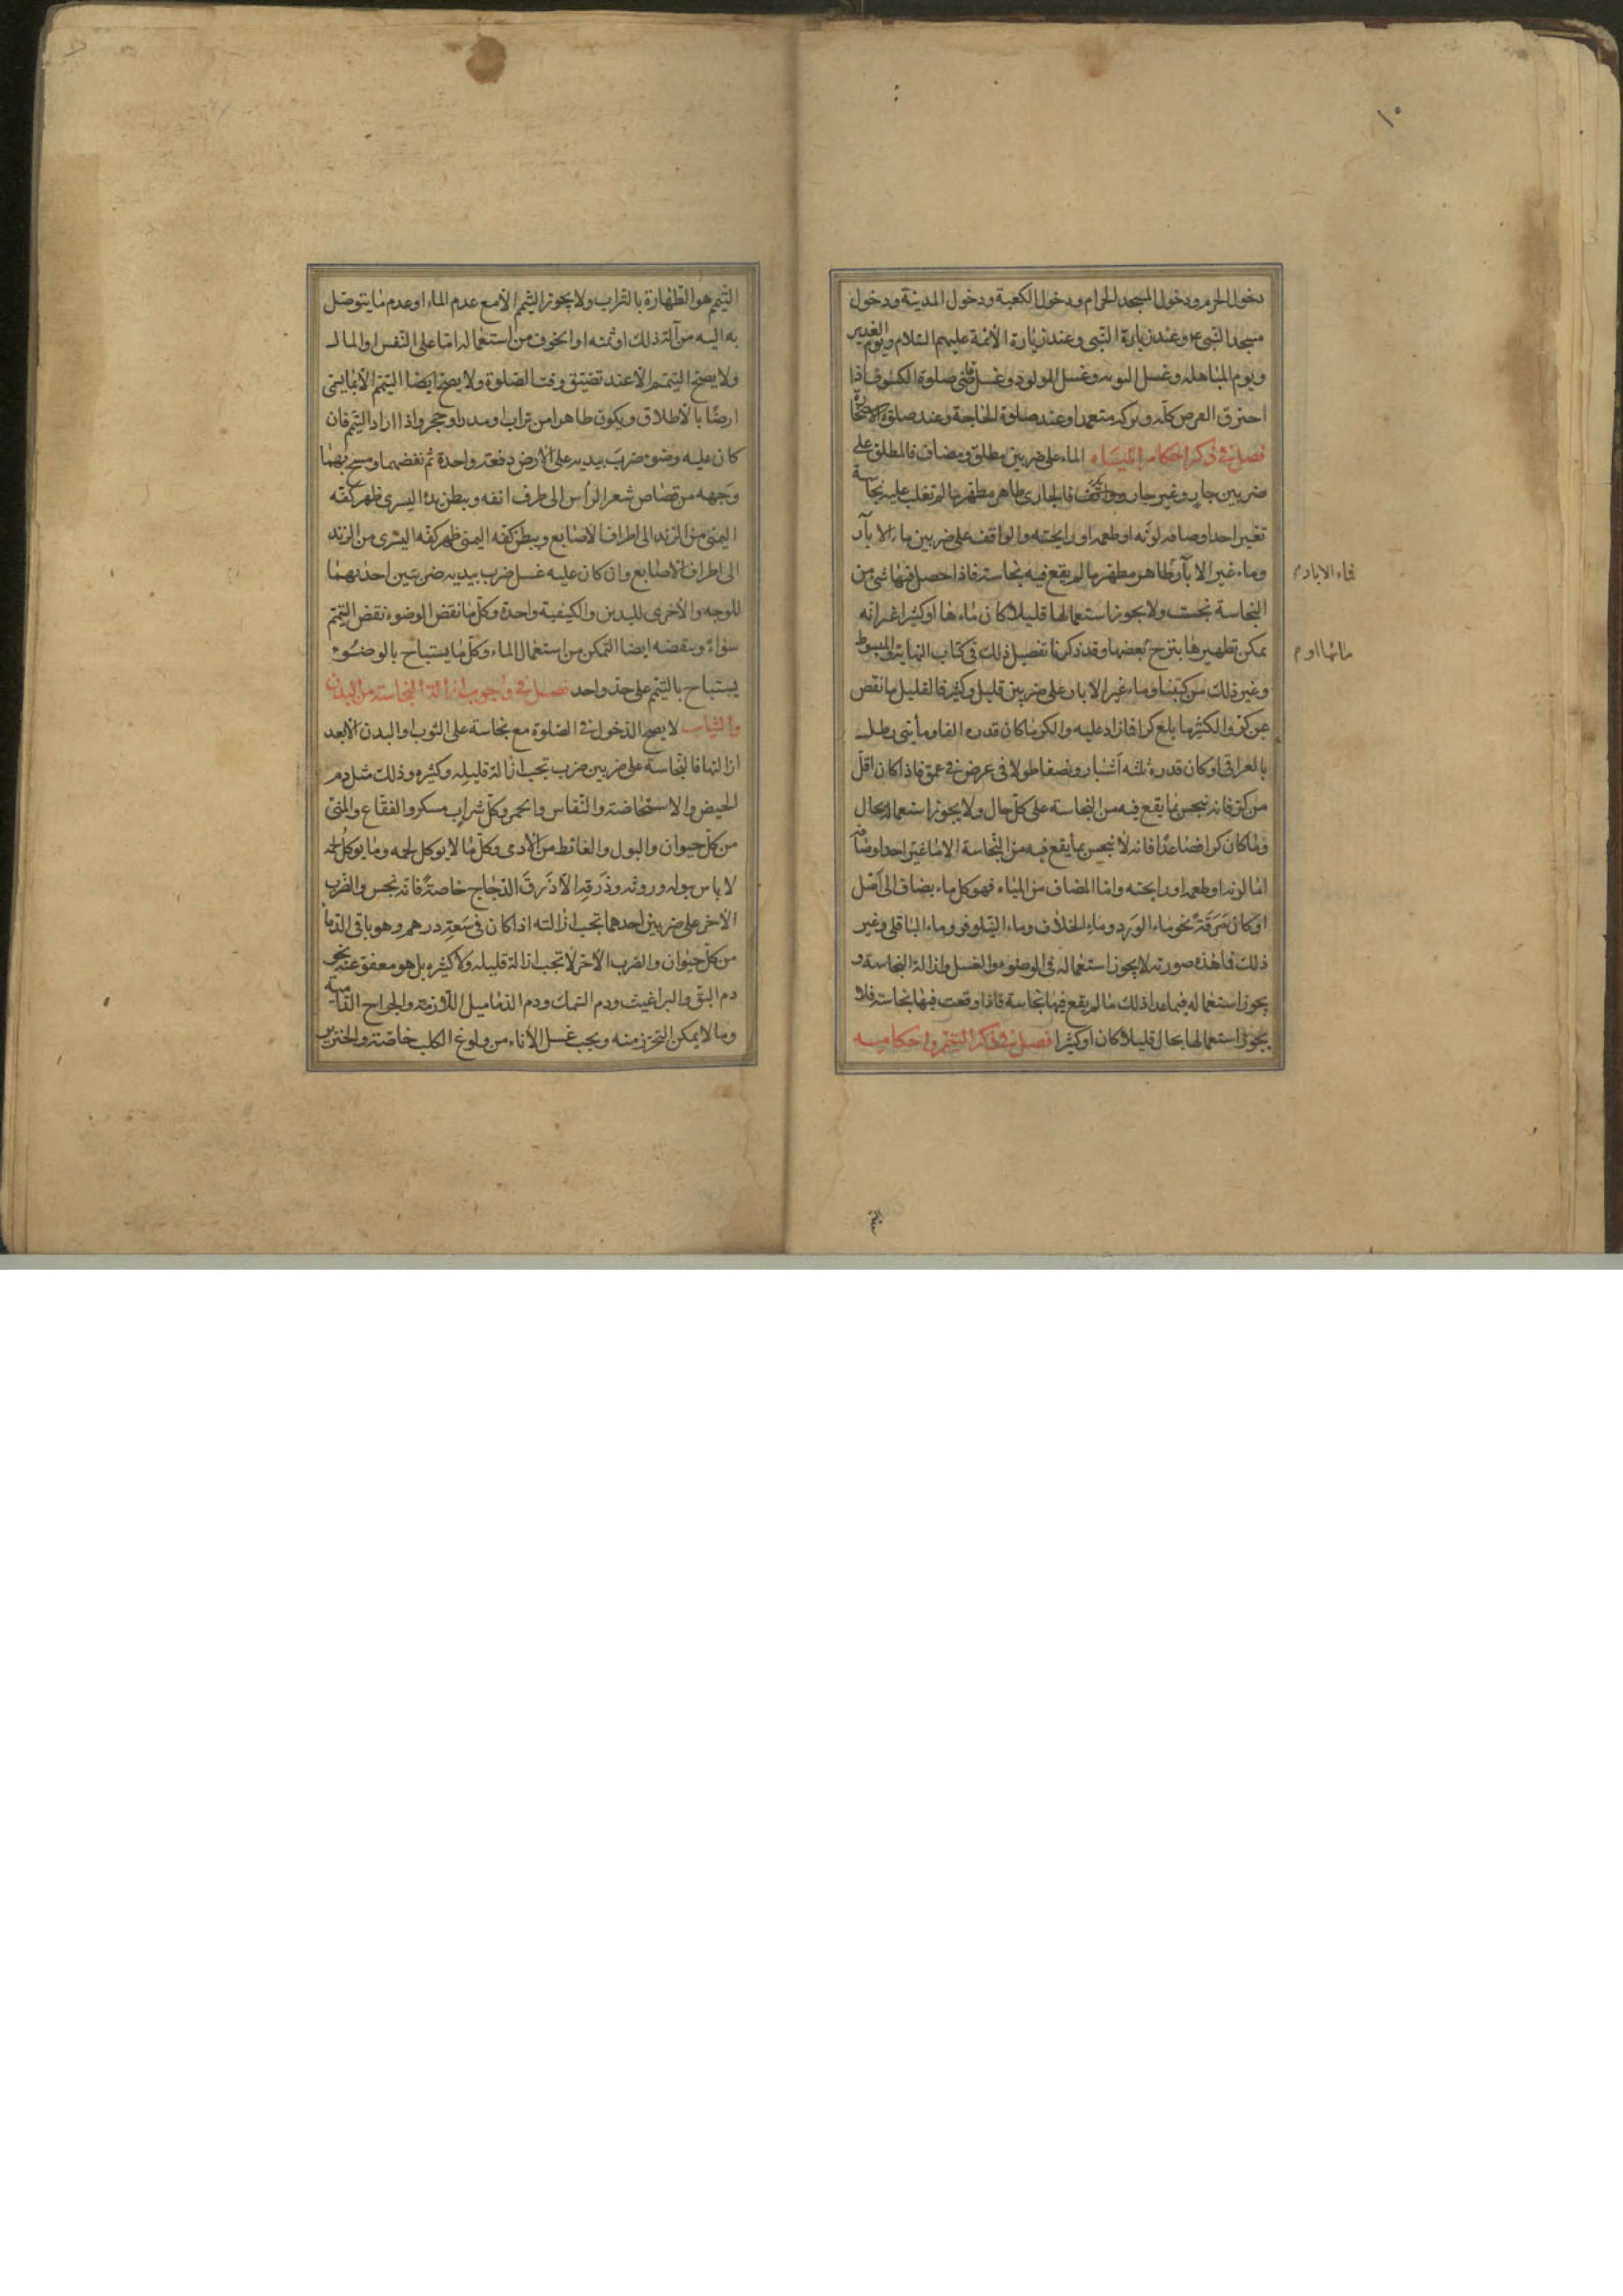 ١٠
دخول الحرم ودخول المسجد الحرام ودخول الكعبة ودخول المدينة ودخول
مسجد النبى ع وعند زيارة النبى وعند زيارة الائمة عليهم السلام ويوم الغدير
ويوم المباهله وغسل التوبه وغسل المولود وغسل قاضى صلوة الكسوف اذا
احترق القرص كله وتركه متعمدا وعند صلوة الحاجة وعند صلوة الاستخارة
فصل فى ذكر احكام المياه الماء على ضربين مطلق ومضاف فالمطلق على
ضربين جار وغير جار وواقف فالجارى طاهر مطهر ما لم تغلب عليه نجاسة
تغير احد اوصافه لونه او طعمه او رايحته والواقف على ضربين ماء الابار
وماء غير الابار طاهر مطهر ما لم يقع فيه نجاسة فاذا حصل فيها شئ من
النجاسة نجست ولا يجوز استعمالها قليلا كان ماءها او كثيرا غير انه
يمكن تطهيرها بنزح بعضها وقد ذكرنا تفصيل ذلك فى كتاب النهاية والمبسوط
وغير ذلك من كتبنا وماء غير الابار على ضربين قليل وكثير فالقليل ما نقص
عن كر والكثير ما بلغ كرا فما زاد عليه والكر ما كان قدره الفا ومأيتى رطل
بالعراقى او كان قدره ثلثه اشبار ونصفا طولا فى عرض فى عمق فاذا كان اقل
من كر فانه ينجس بما يقع فيه من النجاسة على كل حال ولا يجوز استعماله بحال
وما كان كرا فصاعدا فانه لا ينجس بما يقع فيه من النجاسة الا ما غير احد اوصافه
اما لونه او طعمه او رايحته واما المضاف من المياه فهو كل ماء يضاف الى اصل
او كان مرقة نحو ماء الورد وماء الخلاف وماء النيلوفر وماء الباقلى وغير
ذلك فما هذه صورته لا يجوز استعماله فى الوضوء والغسل وازالة النجاسة و
يجوز استعماله فيما عدا ذلك ما لم يقع فيها نجاسة فاذا وقعت فيها نجاسة فلا
يجوز استعمالها بحال قليلا كان او كثيرا فصل فى ذكر التيمم واحكامه
فماء الابار م
مائها او م
التيمم هو الطهارة بالتراب ولا يجوز التيمم الا مع عدم الماء او عدم ما يتوصل
به اليه من آلة ذلك او ثمنه او الخوف من استعماله اما على النفس او المال
ولا يصح التيمم الا عند تضيق وقت الصلوة ولا يصح ايضا التيمم الا بما يسمى
ارضا بالاطلاق ويكون طاهرا من تراب او مدر او حجر واذا اراد التيمم فان
كان عليه وضوء ضرب بيديه على الارض دفعة واحدة ثم نفضهما ومسح بهما
وجهه من قصاص شعر الرأس الى طرف انفه وببطن يده اليسرى ظهر كفه
اليمنى من الزند الى اطراف الاصابع وببطن كفه اليمنى ظهر كفه اليسرى من الزند
الى اطراف الاصابع وان كان عليه غسل ضرب بيديه ضربتين احدىهما
للوجه والاخرى لليدين والكيفية واحدة وكل ما نقض الوضوء نقض التيمم
سواء وينقضه ايضا التمكن من استعمال الماء وكل ما يستباح بالوضوء
يستباح بالتيمم على حد واحد فصل فى وجوب ازالة النجاسة من البدن
والثياب لا يصح الدخول فى الصلوة مع نجاسة على الثوب او البدن الا بعد
ازالتها فالنجاسة على ضربين ضرب تجب ازالة قليله وكثيره وذلك مثل دم
الحيض والاستحاضة والنفاس والخمر وكل شراب مسكر والفقاع والمنى
من كل حيوان والبول والغائط من الادمى وكل ما لا يوكل لحمه وما يوكل لحمه
لا باس ببوله وروثه وذرقه الا ذرق الدجاج خاصة فانه نجس والضرب
الاخر على ضربين احدهما تجب ازالته اذا كان فى سعة درهم وهو باقى الدماء
من كل حيوان والضرب الاخر لا تجب ازالة قليله ولا كثيره بل هو معفو عنه نحو
دم البق والبراغيث ودم السمك ودم الدماميل اللازمة والجراح الدامية
وما لا يمكن التحرز منه ويجب غسل الاناء من ولوغ الكلب خاصة والخنزير